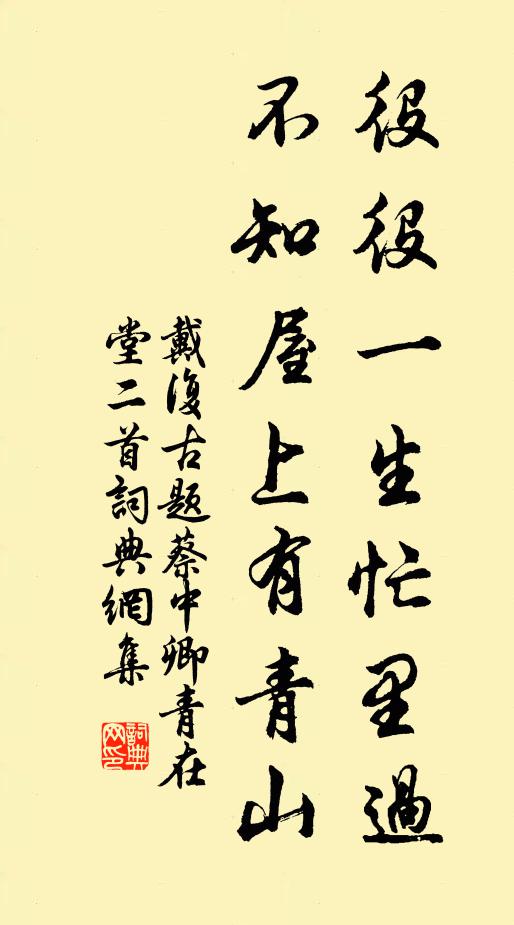 役役一生忙里過
不知屋上有青山
戴復古題蔡中卿青在
堂二首詞典網集
詞典
网印